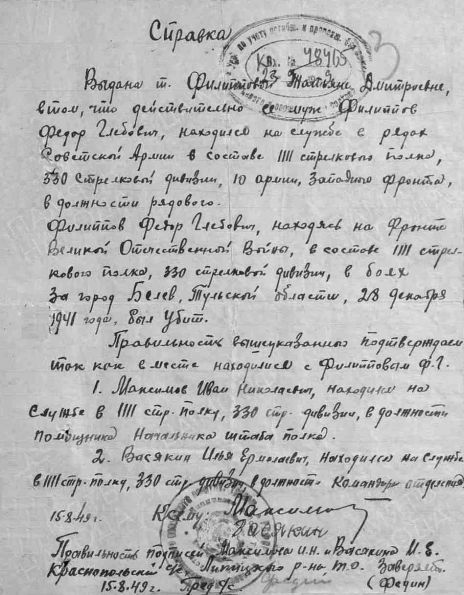 Справка
по учету погибш. и пропавш. без
Вх. № 48465
3
Выдана т. Филипповой Татьяне Дмитриевне,
в том, что действительно ее муж Филиппов
Федор Глебович, находился на службе в рядах
Советской Армии в составе 1111 стрелкового полка,
330 Стрелковой дивизии, 10 армии, Западного фронта,
в должности рядового.
Филиппов Федор Глебович, находясь на Фронте
Великой Отечественной Войны, в составе 1111 стрел-
кового полка, 330 стрелковой дивизии, в боях
за город Белев, Тульской области, 28 декабря
1941 года, был убит.
Правильность вышеуказанного подтверждаем
так как вместе находился с Филипповым Ф.Г.
1. Максимов Иван Николаевич, находился на
Службе в 1111 стр. полку, 330 стр. дивизии, в должности
помощника Начальника штаба полка.
2. Васякин Илья Ермолаевич, находился на службе
в 1111 стр. полку, 330 стр. дивизии, в должности Командира отделения
15.8.49г. К сему: Максимов
Васякин
Правильность подписи Максимова И.Н. и Васякина И.Е.
Краснопольский с/с Липицкого р-на Т.О. Заверяет.
15.8.49г. Пред с/с (Федин)